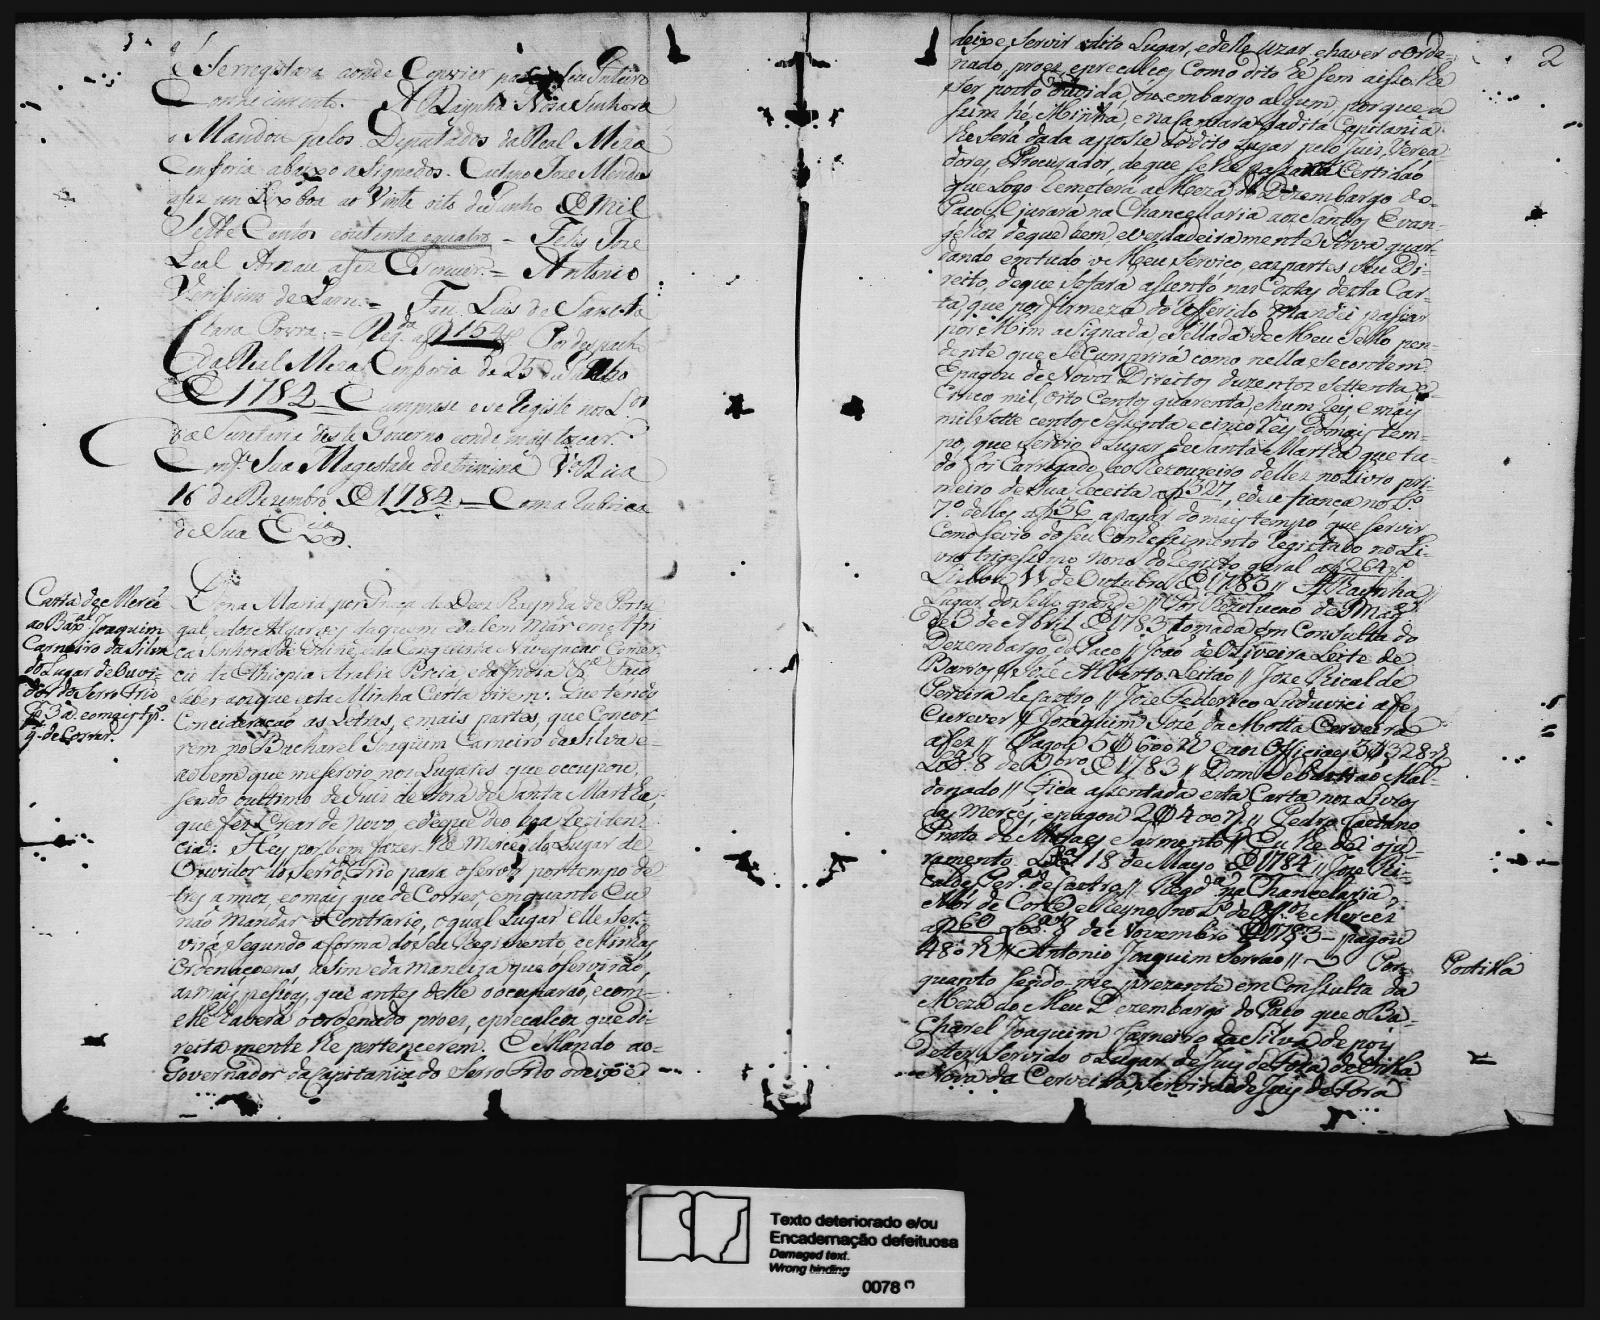 e Se registara aonde Convier para Seu Inteiro
Conhecimento. A Raynha Nosa Senhora
o Mandou pelos Deputados da Real Meza
Censoria abaixo asignados. Joze Mendes
a fez em Lixboa ao Vinte oito de Junho @ Mil
Sette Centos eoutenta equatro = Felis Joze
Leal Arnau a fez Escrever = Antonio
Verissimo de Larre = Frei Luis de Santa
Clara Povoa = Reg.da a f 154 Por despacho
da Real Meza Censoria de 25 de
@ 1784 = Cumprase e se Registe nos L.os
da Secretaria deste Governo eonde mais tocar
Conf.e Sua Magestade o detrimina V.a Rica
16 de Dezembro @ 1784 = Coma Rubrica
de Sua Ex.cia
Carta de Merce
ao Bax.el Joaquim
Carneiro da Silva
do Lugar de Ouvi-
dor do Serro Frio
p.r 3 a. eomais tp.o
q. de Correr.
Dona Maria por Graça de Deos Raynha de Portu
gal, edos Algarves daquem edalem Mar em Afri
ca Senhora de Guine, eda Conquista Navegaçao Comer
cio da Ethiopia Arabia Percia, eda India &.a Faço
saber aos que esta Minha Carta virem: Que tendo
Concideraçaõ as Letras, emais partes, que Concor
rem no Bacharel Joaquim Carneiro da Silva e-
aobem que meservio nos Lugares que occupou,
sendo oultimo de Juis de Fora de Santa Martha,
que fez Crear de Novo, edeque deo boa Reziden
cia: Hey por bem fazer-lhe Merce do Lugar de
Ouvidor do Serro Frio para o servir por tempo de
tres annos, eomais que de Correr, emquanto Eu
naõ mandar oContrario, oqual Lugar elle Ser-
virá segundo aforma do Seu Regimento, e Minhas
Ordenaçoens, asim eda maneira que oserviraõ
asmais pessoas, que antes delle oocuparaõ, ecom-
elle haverá o ordenado proes, eprecalços que di-
rectamente lhe pertencerem. E Mando ao-
Governador da Capitania do Serro Frio odeixe
2
deixe Servir odito Lugar, edelle uzar, ehaver oOrde-
nado, proes, eprecalços Como dito he sem aisso lhe
ser posto duvida, ou embargo algum, porque a
sim hé Minha e na Camara dadita Capitania
lhe será dada aposse dodito Lugar pelo Juis, Verea-
dores, e Procurador, deque selhe passará Certidaõ
que Logo Remeterá a Meza do Dezembargo do-
Paço, E jurará na Chancellaria aos Santos Evan-
gelhos deque bem, everdadeiramente Sirva, guar-
dando emtudo o Meu Serviço, eas partes seu Di-
reito, deque sefará assento nas Costas desta Car-
ta, que por firmeza do Referido Mandei passar
por Mim asignada, eSellada de Meu Sello pen-
dente que Se Cumprirá como nella Se contem
Epagou de Novos Direitos duzentos Settenta, e
Cinco mil, oito Centos quarenta, ehum reis, e mais
mil Sette centos Secenta ecinco reis do mais tem-
po, que servio o Lugar de Santa Martha que tu-
do foi Carregado ao Thezoureiro delles no Livro pri-
meiro de sua receita a f 327, edeu fiança no L.o
7.o dellas a f 56 apagar do mais tempo que servir
Como se vio do seu Conhecimento Registado no Li-
vro trigessimo nono do Registo geral a f 264 v.o
Lisboa 11 de Outubro @ 1783 // A Raynha //
Lugar do Sello grande // Por Rezoluçaõ de S. Mag.e
de 3 de Abril @ 1783 tomada em Consulta do
Dezembargo do Paço // Joaõ de Oliveira Leite de
Barros // Joze Alberto Leitaõ // Joze Ricalde
Pereira de Castro // Joze Federico Ludovici a fez
Escrever // Joaquim Joze da Motta Cerveira
a fez // Pagou 5$600 r.s e aos Officiaes 3$328 r.s
Lx.a 8 de 9bro @ 1783 // Dom Sebastiaõ Mal-
donado // Fica assentada esta Carta nos Livros
das Merces, epagou 2$400 r.s // Pedro Caetano
Pinto de Moraes Sarmento // Eu lhe dei o ju-
ramento. Lx.a 18 de Mayo @ 1784 // Joze Ri-
calde Per.a de Castro // Reg.da na Chancelaria
Mór da Corte, eReyno no L.o de Off.os e Merces
a f 60 Lx.a 8 de Novembro @ 1783 - pagou
480 r.s // Antonio Joaquim Serraõ // ~ Por-
Postilha
quanto sendo-me prezente em Consulta da
Meza do Meu Dezembargo do Paço que oBa-
charel Joaquim Carneiro da Silva depois
deter Servido o Lugar de Juis de Fora de Villa
Nova da Cerveira, Servira de Juis de Fora
Texto deteriorado e/ou
Encadernação defeituosa
Damaged text.
Wrong binding
0078